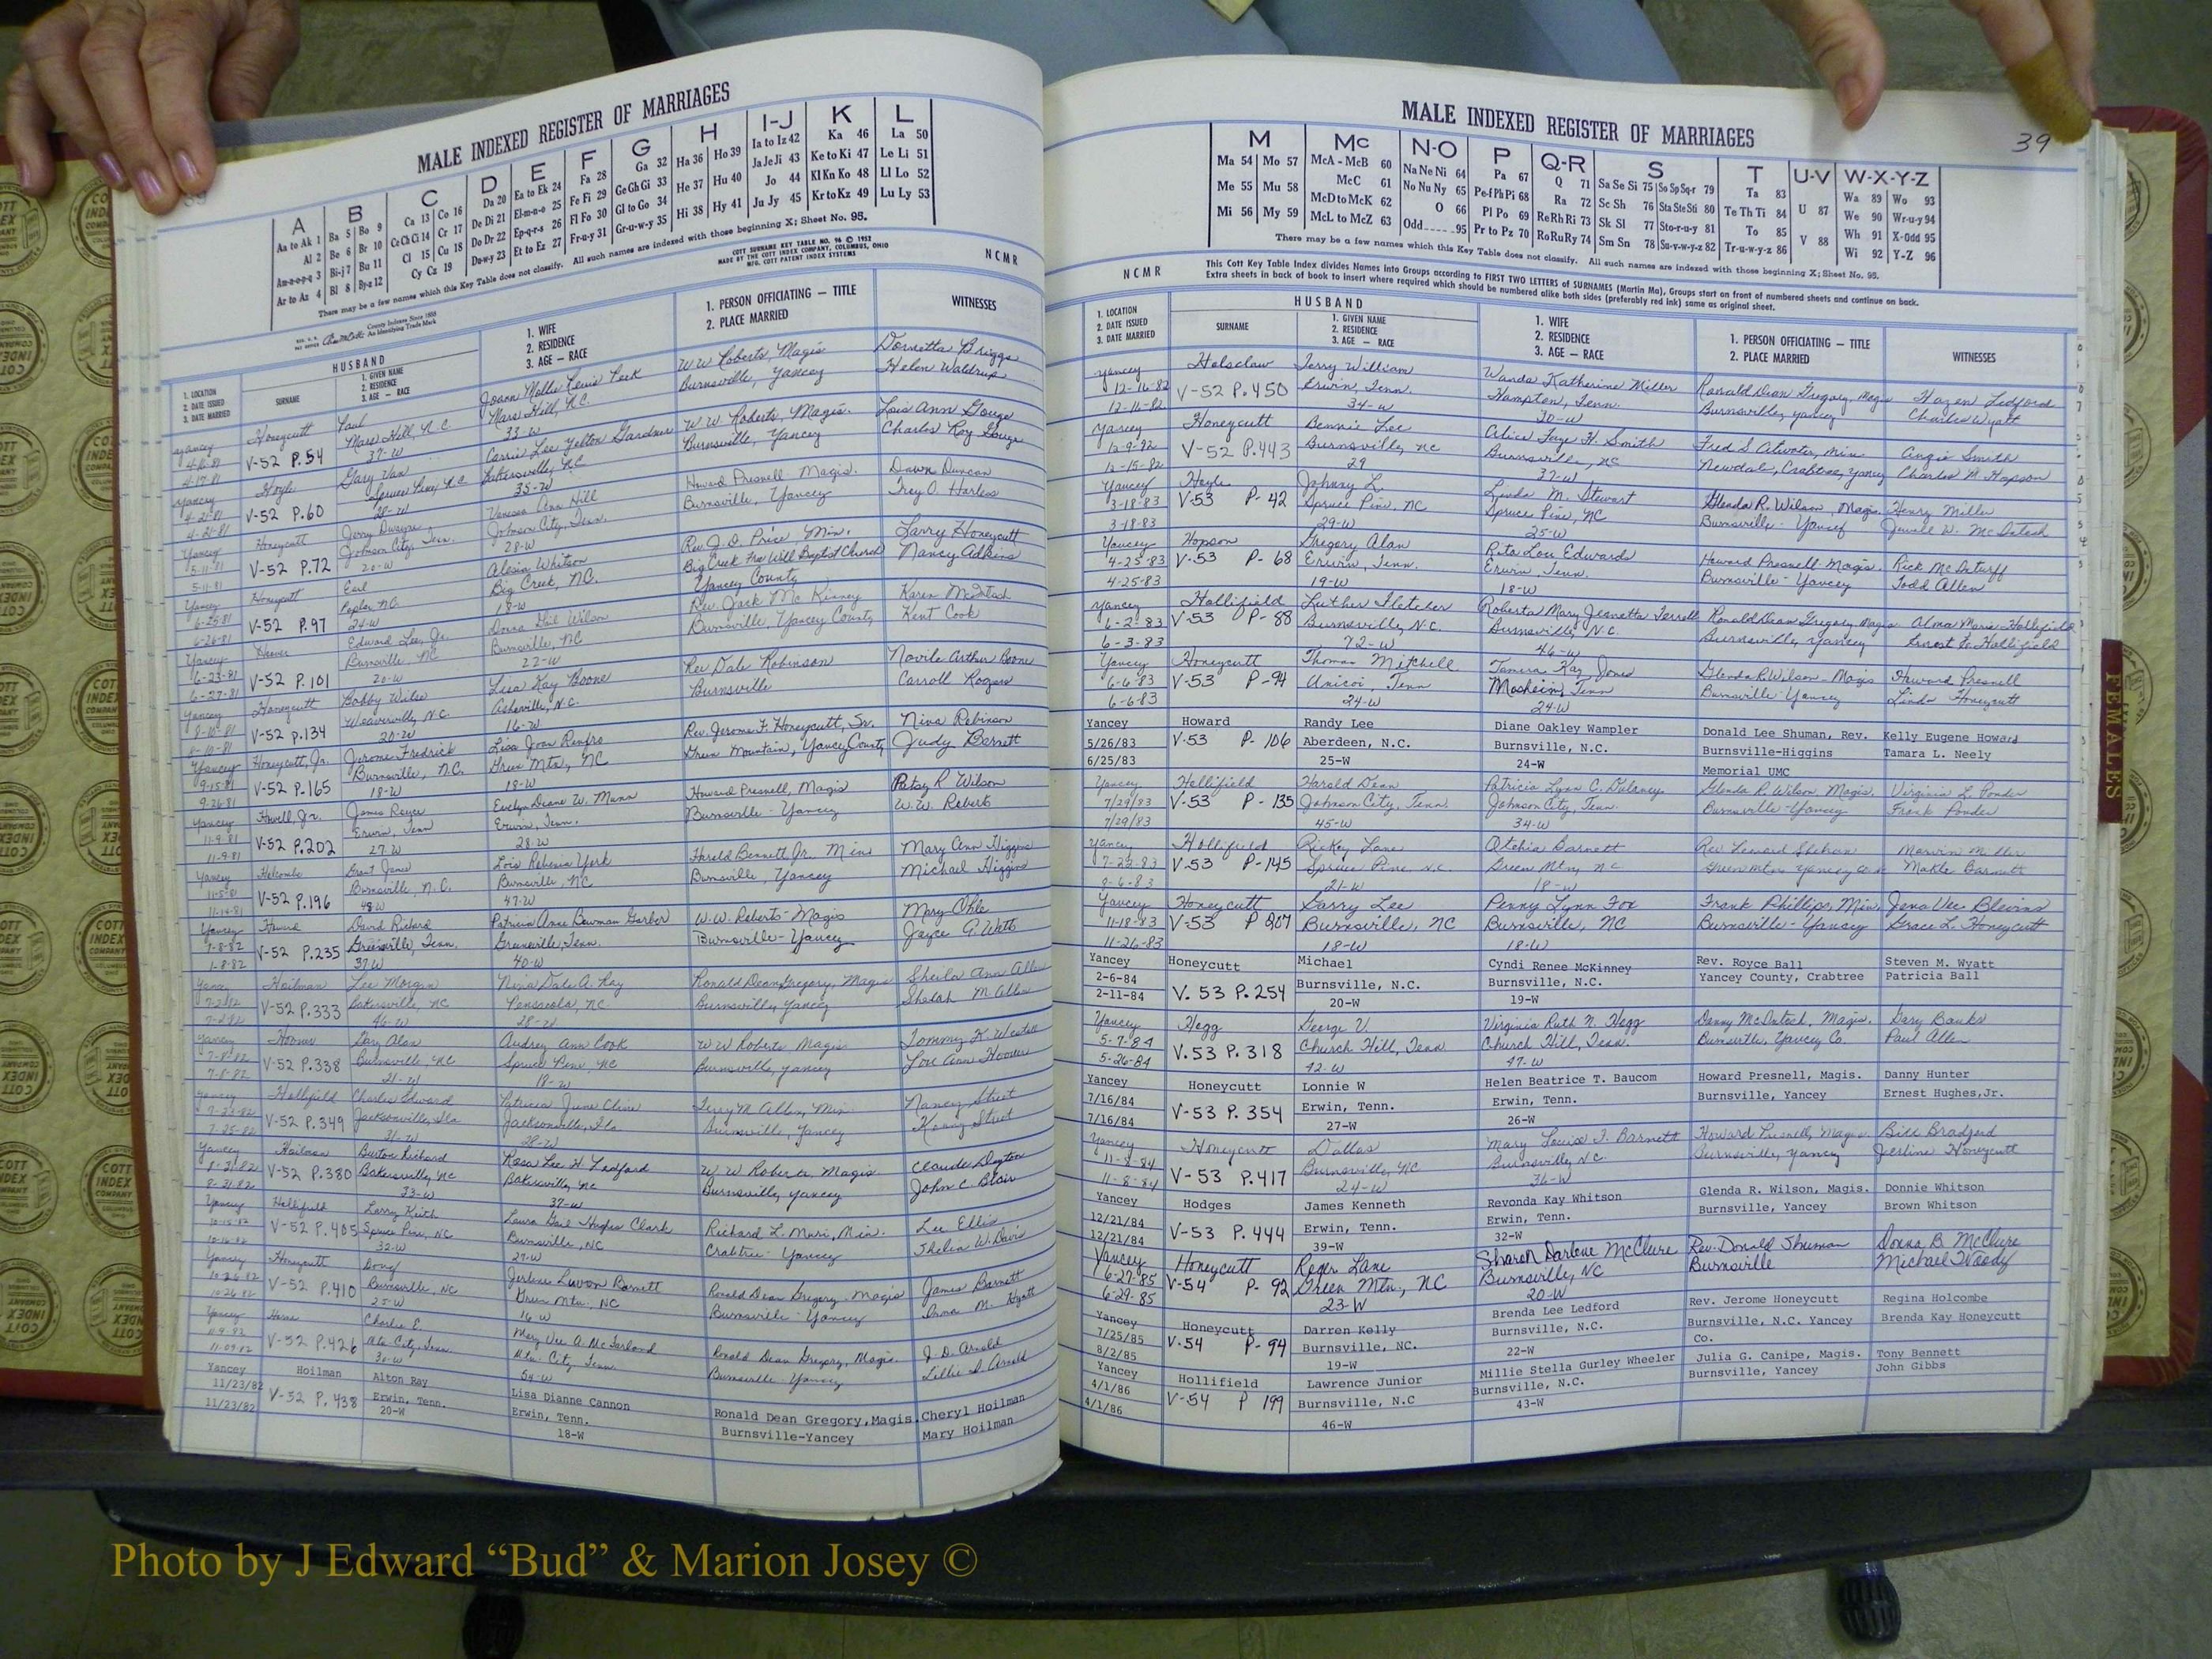 MALE INDEXED REGISTER OF MARRIAGES
A B C D E F G H I-J K L
Aa to Ak 1 Ba 5 Bo 9 Ca 13 Co 16 Da 20 Ea to Ek 24 Fa 28 Ga 32 Ha 36 Ho 39 Ia to Iz 42 Ka 46 La 50
Al 2 Be 6 Br 10 Ce Ch Ci 14 Cr 17 De Di 21 El-m-n-o 25 Fe Fi 29 Ge Gh Gi 33 He 37 Hu 40 Ja Je Ji 43 Ke to Ki 47 Le Li 51
Am-n-o-p-q 3 Bi-j 7 Bu 11 Cl 15 Cu 18 Do Dr 22 Ep-q-r-s 26 Fl Fo 30 Gl to Go 34 Hi 38 Hy 41 Jo 44 Kl Kn Ko 48 Ll Lo 52
Ar to Az 4 Bl 8 By-z 12 Cy Cz 19 Du-w-y 23 Et to Ez 27 Fr-u-y 31 Gr-u-w-y 35 Ju Jy 45 Kr to Kz 49 Lu Ly 53
There may be a few names which this Key Table does not classify. All such names are indexed with those beginning X; Sheet No. 95.
COTT SURNAME KEY TABLE NO. 96 © 1952
MADE BY THE COTT INDEX COMPANY, COLUMBUS, OHIO
MFG. COTT PATENT INDEX SYSTEMS
NCMR
County Indexes Since 1888
An Identifying Trade Mark
HUSBAND
1. LOCATION 2. DATE ISSUED 3. DATE MARRIED
SURNAME
1. GIVEN NAME 2. RESIDENCE 3. AGE — RACE
1. WIFE 2. RESIDENCE 3. AGE — RACE
1. PERSON OFFICIATING — TITLE 2. PLACE MARRIED
WITNESSES
Yancey Honeycutt Paul W W Roberts, Magis
V-52 P.54 Mars Hill, N.C. Mars Hill, N.C. Burnsville, Yancey Helen Waldrup
4-17-81 37-W 33-W
Yancey Hoyle Gary Van Carrie Lee Yelton Gardner W. W. Roberts, Magis. Lois Ann Gouge
4-21-81 V-52 P.60 Spruce Pine, N.C. Bakersville, NC Burnsville, Yancey Charles Roy Gouge
4-21-81 28-W 35-W
Yancey Honeycutt Jerry Dwayne Vanessa Ann Hill Howard Presnell Magis. Dawn Duncan
5-11-81 V-52 P.72 Johnson City, Tenn. Johnson City, Tenn. Burnsville, Yancey Troy O. Harless
5-11-81 20-W 28-W
Yancey Honeycutt Earl Alesia Whitson Rev. J. D. Price Min. Larry Honeycutt
6-25-81 V-52 P.97 Poplar N.C. Big Creek, N.C. Big Creek Free Will Baptist Church Nancy Adkins
6-26-81 24-W 18-W Yancey County
Yancey Hoover Edward Lee, Jr. Donna Gail Wilson Rev. Jack McKinney Karen McIntosh
6-23-81 V-52 P.101 Burnsville, NC Burnsville, NC Burnsville, Yancey County Kent Cook
6-27-81 20-W 22-W
Yancey Honeycutt Bobby Wilse Lisa Kay Boone Rev Dale Robinson Novile Arthur Boone
8-10-81 V-52 P.134 Weaverville, N.C. Asheville, N.C. Burnsville Carroll Rogers
8-10-81 20-W 16-W
Yancey Honeycutt, Jr. Jerome Fredrick Lisa Joan Renfro Rev. Jerome F. Honeycutt, Sr. Nina Robinson
9-15-81 V-52 P.165 Burnsville, N.C. Green Mtn, NC Green Mountain, Yancey County Judy Bennett
9-26-81 18-W 18-W
Yancey Howell, Jr. James Royce Evelyn Deane W. Mann Howard Presnell, Magis Patsy R Wilson
11-9-81 V-52 P.202 Erwin, Tenn Erwin, Tenn. Burnsville - Yancey W. W. Roberts
11-9-81 27-W 28-W
Yancey Holcombe Grant James Lois Rebecca York Harold Bennett Jr. Min Mary Ann Higgins
11-5-81 V-52 P.196 Burnsville, N.C. Burnsville, NC Burnsville, Yancey Michael Higgins
11-14-81 48-W 47-W
Yancey Howard David Richard Patricia Anne Bowman Gerber W. W. Roberts - Magis Mary Ohle
1-8-82 V-52 P.235 Greeneville, Tenn. Greeneville, Tenn. Burnsville - Yancey Joyce G. Webb
1-8-82 37-W 40-W
Yancey Hoilman Lee Morgan Nina Dale A. Ray Ronald Dean Gregory, Magis Sheila Ann Allen
7-2-82 V-52 P.333 Bakersville, NC Pensacola, NC Burnsville, Yancey Shelah M. Allen
7-2-82 46-W 28-W
Yancey Hoover Gary Alan Audrey Ann Cook W W Roberts Magis Tommy H. Westall
7-8-82 V-52 P.338 Burnsville, NC Spruce Pine, NC Burnsville, Yancey Lori Ann Hoover
7-8-82 21-W 18-W
Yancey Hollifield Charles Edward Patricia June Cline Terry M Allen, Min. Nancy Street
7-23-82 V-52 P.349 Jacksonville, Fla Jacksonville, Fla Burnsville, Yancey
7-25-82 31-W 28-W
Yancey Hoilman Burton Richard Rosa Lee H. Ledford W. W. Roberts Magis Claude Dayton
8-31-82 V-52 P.380 Bakersville, NC Bakersville, NC Burnsville, Yancey John C. Blair
8-31-82 33-W 37-W
Yancey Hollifield Larry Keith Laura Gail Hughes Clark Richard L. Muri, Min. Lee Ellis
10-15-82 V-52 P.405 Spruce Pine, NC Burnsville, NC Crabtree - Yancey Shelia W. Davis
10-16-82 32-W 27-W
Yancey Honeycutt Doug Jerlene Luvon Barnett Ronald Dean Gregory - Magis James Barnett
10-26-82 V-52 P.410 Burnsville, NC Green Mtn. NC Burnsville - Yancey Anna M. Hyatt
10-26-82 25-W 16-W
Yancey Horne Charlie E. Mary Vee A. McFarland Ronald Dean Gregory, Magis. J. D. Arnold
11-9-82 V-52 P.426 Mtn. City, Tenn. Mtn. City, Tenn. Burnsville - Yancey Lillie D. Arnold
11-09-82 30-W 54-W
Yancey Hoilman Alton Ray Lisa Dianne Cannon Ronald Dean Gregory, Magis. Cheryl Hoilman
11/23/82 V-52 P. 438 Erwin, Tenn. Erwin, Tenn. Burnsville-Yancey Mary Hoilman
11/23/82 20-W 18-W
MALE INDEXED REGISTER OF MARRIAGES
39
M Mc N-O P Q-R S T U-V W-X-Y-Z
Ma 54 Mo 57 McA - McB 60 Na Ne Ni 64 Pa 67 Q 71 Sa Se Si 75 So Sp Sq-r 79 Ta 83 U 87 Wa 89 Wo 93
Me 55 Mu 58 McC 61 No Nu Ny 65 Pe-f Ph Pi 68 Ra 72 Sc Sh 76 Sta Ste Sti 80 Te Th Ti 84 V 88 We 90 Wr-u-y 94
Mi 56 My 59 McD to McK 62 O 66 Pl Po 69 Re Rh Ri 73 Sk Sl 77 Sto-r-u-y 81 To 85 Wh 91 X-Odd 95
McL to McZ 63 Odd 95 Pr to Pz 70 Ro Ru Ry 74 Sm Sn 78 Su-v-w-y-z 82 Tr-u-w-y-z 86 Wi 92 Y-Z 96
There may be a few names which this Key Table does not classify. All such names are indexed with those beginning X; Sheet No. 95.
NCMR
This Cott Key Table Index divides Names into Groups according to FIRST TWO LETTERS of SURNAMES (Martin Ma), Groups start on front of numbered sheets and continue on back.
Extra sheets in back of book to insert where required which should be numbered alike both sides (preferably red ink) same as original sheet.
HUSBAND
1. LOCATION 2. DATE ISSUED 3. DATE MARRIED
SURNAME
1. GIVEN NAME 2. RESIDENCE 3. AGE — RACE
1. WIFE 2. RESIDENCE 3. AGE — RACE
1. PERSON OFFICIATING — TITLE 2. PLACE MARRIED
WITNESSES
Yancey Holsclaw Terry William Wanda Katherine Miller Ronald Dean Gregory, Magis Hazen Ledford
12-16-82 V-52 P.450 Erwin, Tenn. Hampton, Tenn. Burnsville, Yancey Charles Wyatt
12-16-82 34-W 30-W
Yancey Honeycutt Bennie Lee Alice Faye H. Smith Fred S Atwater, Min Angie Smith
12-9-82 V-52 P.443 Burnsville, NC Burnsville, NC Newdale, Crabtree, Yancey Charles M. Hopson
12-15-82 29 37-W
Yancey Hoyle Johnny L. Linda M. Stewart Glenda R. Wilson, Magis. Henry Miller
3-18-83 V-53 P-42 Spruce Pine, NC Spruce Pine, NC Burnsville - Yancey Jewell W. McIntosh
3-18-83 29-W 25-W
Yancey Hopson Gregory Alan Rita Lou Edwards Howard Presnell Magis. Rick McInturff
4-25-83 V-53 P-68 Erwin, Tenn. Erwin, Tenn. Burnsville - Yancey Todd Allen
4-25-83 19-W 18-W
Yancey Hollifield Luther Fletcher Roberta Mary Jeanette Terrell Ronald Dean Gregory Magis Alma Marie Hollifield
6-2-83 V-53 P-88 Burnsville, N.C. Burnsville, N.C. Burnsville, Yancey Ernest F. Hollifield
6-3-83 72-W 46-W
Yancey Honeycutt Thomas Mitchell Tamera Kay Jones Glenda R Wilson - Magis Howard Presnell
6-6-83 V-53 P-94 Unicoi, Tenn Mosheim, Tenn Burnsville - Yancey Linda Honeycutt
6-6-83 24-W 24-W
Yancey Howard Randy Lee Diane Oakley Wampler Donald Lee Shuman, Rev. Kelly Eugene Howard
5/26/83 V-53 P-106 Aberdeen, N.C. Burnsville, N.C. Burnsville-Higgins Tamara L. Neely
6/25/83 25-W 24-W Memorial UMC
Yancey Hollifield Harold Dean Patricia Lynn C. Dulaney Glenda R. Wilson, Magis. Virginia L. Ponder
7/29/83 V-53 P-135 Johnson City, Tenn. Johnson City, Tenn. Burnsville - Yancey Frank Ponder
7/29/83 45-W 34-W
Yancey Hollifield Rickey Lane Barnett
7-22-83 V-53 P-145 Spruce Pine, N.C. Green Mtn, N.C.
8-6-83 21-W 18-W
Yancey Honeycutt Larry Lee Penny Lynn Fox Frank Phillips, Min. Jena Vee Blevins
11-18-83 V-53 P 207 Burnsville, NC Burnsville, NC Burnsville - Yancey Grace L. Honeycutt
11-26-83 18-W 18-W
Yancey Honeycutt Michael Cyndi Renee McKinney Rev. Royce Ball Steven M. Wyatt
2-6-84 V. 53 P. 254 Burnsville, N.C. Burnsville, N.C. Yancey County, Crabtree Patricia Ball
2-11-84 20-W 19-W
Yancey Hogg George V. Virginia Ruth N. Hogg Danny McIntosh, Magis. Gary Banks
5-7-84 V.53 P. 318 Church Hill, Tenn Church Hill, Tenn. Burnsville, Yancey Co. Paul Allen
5-26-84 42-W 47-W
Yancey Honeycutt Lonnie W Helen Beatrice T. Baucom Howard Presnell, Magis. Danny Hunter
7/16/84 V-53 P. 354 Erwin, Tenn. Erwin, Tenn. Burnsville, Yancey Ernest Hughes,Jr.
7/16/84 27-W 26-W
Yancey Honeycutt Dallas Mary Louise T. Barnett Howard Presnell, Magis. Bill Bradford
11-8-84 V-53 P.417 Burnsville, NC Burnsville, N.C. Burnsville, Yancey Jerline Honeycutt
11-8-84 24-W 36-W
Yancey Hodges James Kenneth Revonda Kay Whitson Glenda R. Wilson, Magis. Donnie Whitson
12/21/84 V-53 P. 444 Erwin, Tenn. Erwin, Tenn. Burnsville, Yancey Brown Whitson
12/21/84 39-W 32-W
Yancey Honeycutt Roger Lane Sharon Darlene McClure Rev. Donald Shuman Donna B. McClure
6-27-85 V-54 P-92 Green Mtn., NC Burnsville, NC Burnsville Michael Woody
6-29-85 23-W 20-W
Yancey Honeycutt Darren Kelly Brenda Lee Ledford Rev. Jerome Honeycutt Regina Holcombe
7/25/85 V-54 P-94 Burnsville, NC. Burnsville, N.C. Burnsville, N.C. Yancey Co. Brenda Kay Honeycutt
8/2/85 19-W 22-W
Yancey Hollifield Lawrence Junior Millie Stella Gurley Wheeler Julia G. Canipe, Magis. Tony Bennett
4/1/86 V-54 P 199 Burnsville, N.C Burnsville, N.C. Burnsville, Yancey John Gibbs
4/1/86 46-W 43-W
FEMALES
COTT INDEX COMPANY
Photo by J Edward “Bud” & Marion Josey ©